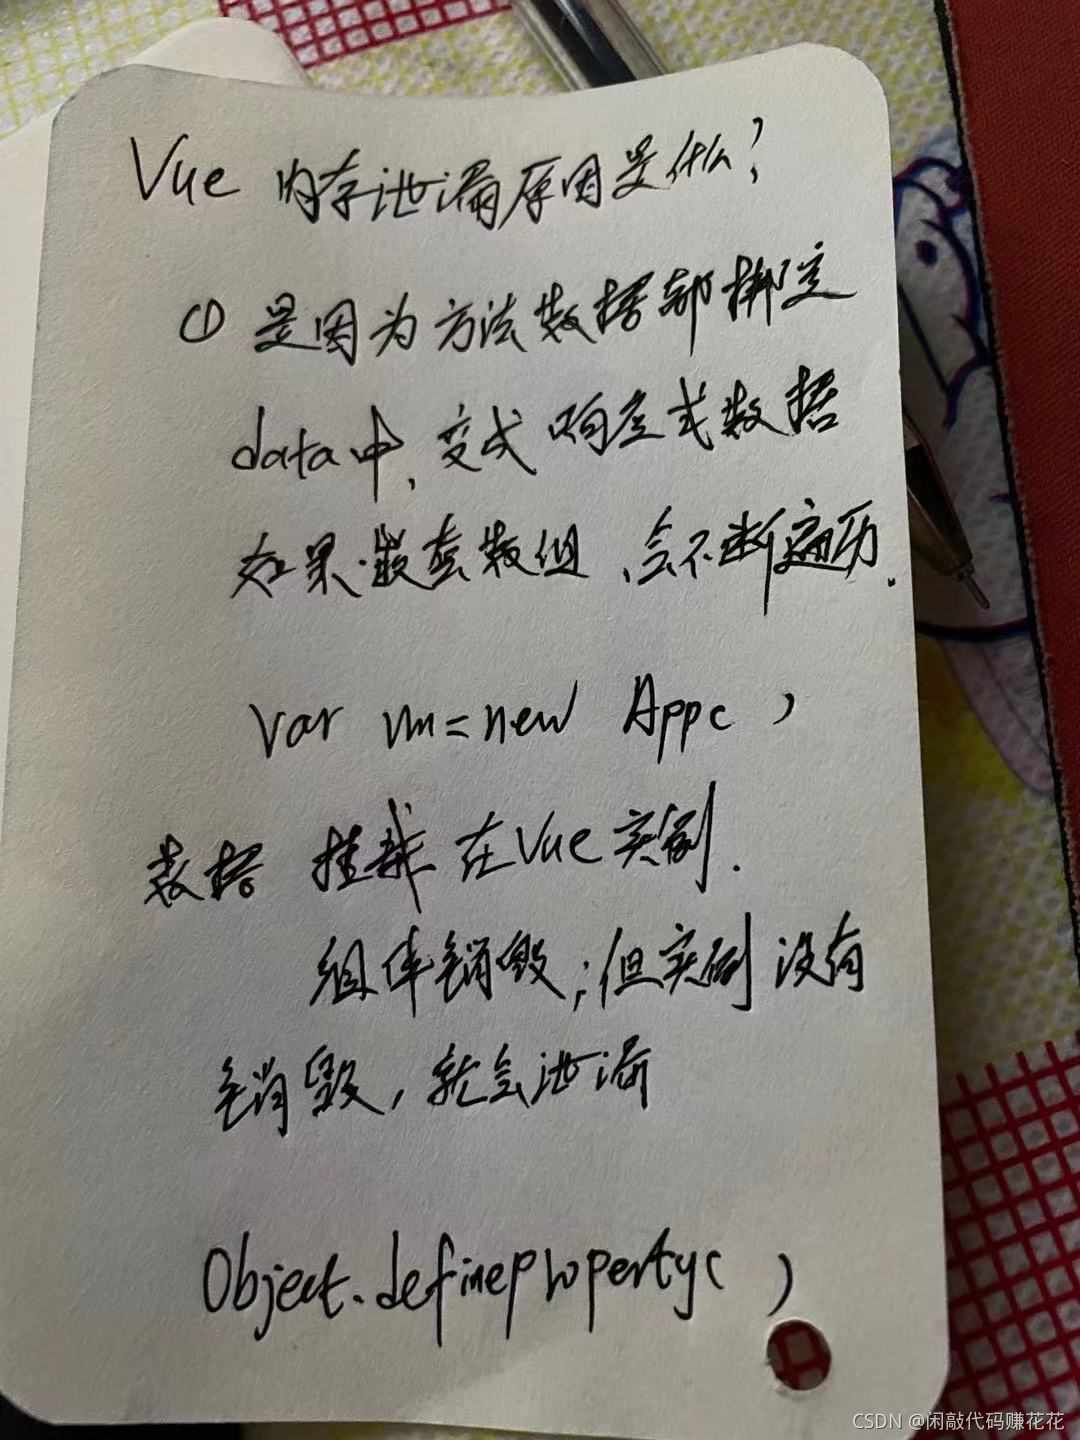 Vue 内存泄漏原因是什么?
① 是因为方法数据都绑定
data中, 变成响应式数据
如果嵌套数组, 会不断遍历.
var vm=new App( )
数据 挂载 在Vue实例.
组件销毁; 但实例没有
销毁, 就会泄漏
Object.defineproperty( )
CSDN @闲敲代码赚花花